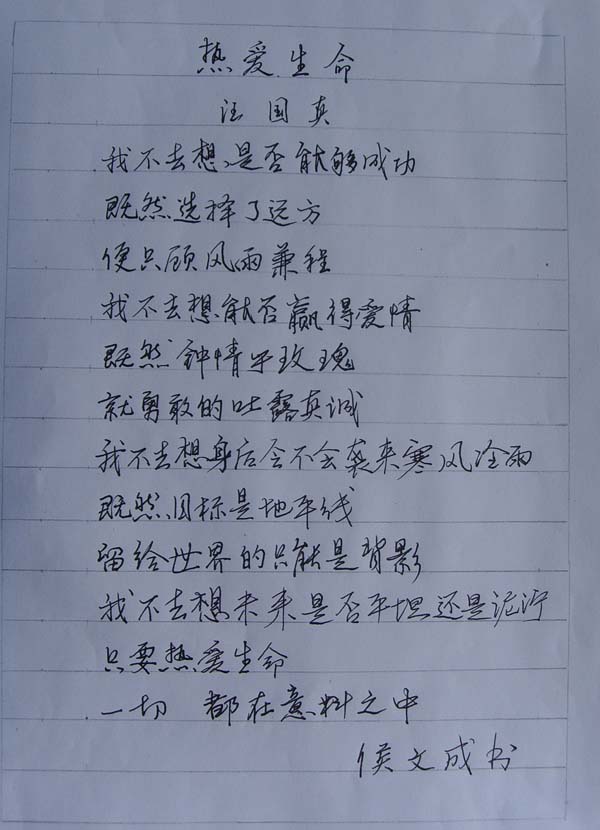 热爱生命
汪国真
我不去想是否能够成功
既然选择了远方
便只顾风雨兼程
我不去想能否赢得爱情
既然钟情于玫瑰
就勇敢的吐露真诚
我不去想身后会不会袭来寒风冷雨
既然目标是地平线
留给世界的只能是背影
我不去想未来是否平坦还是泥泞
只要热爱生命
一切 都在意料之中
侯文成书